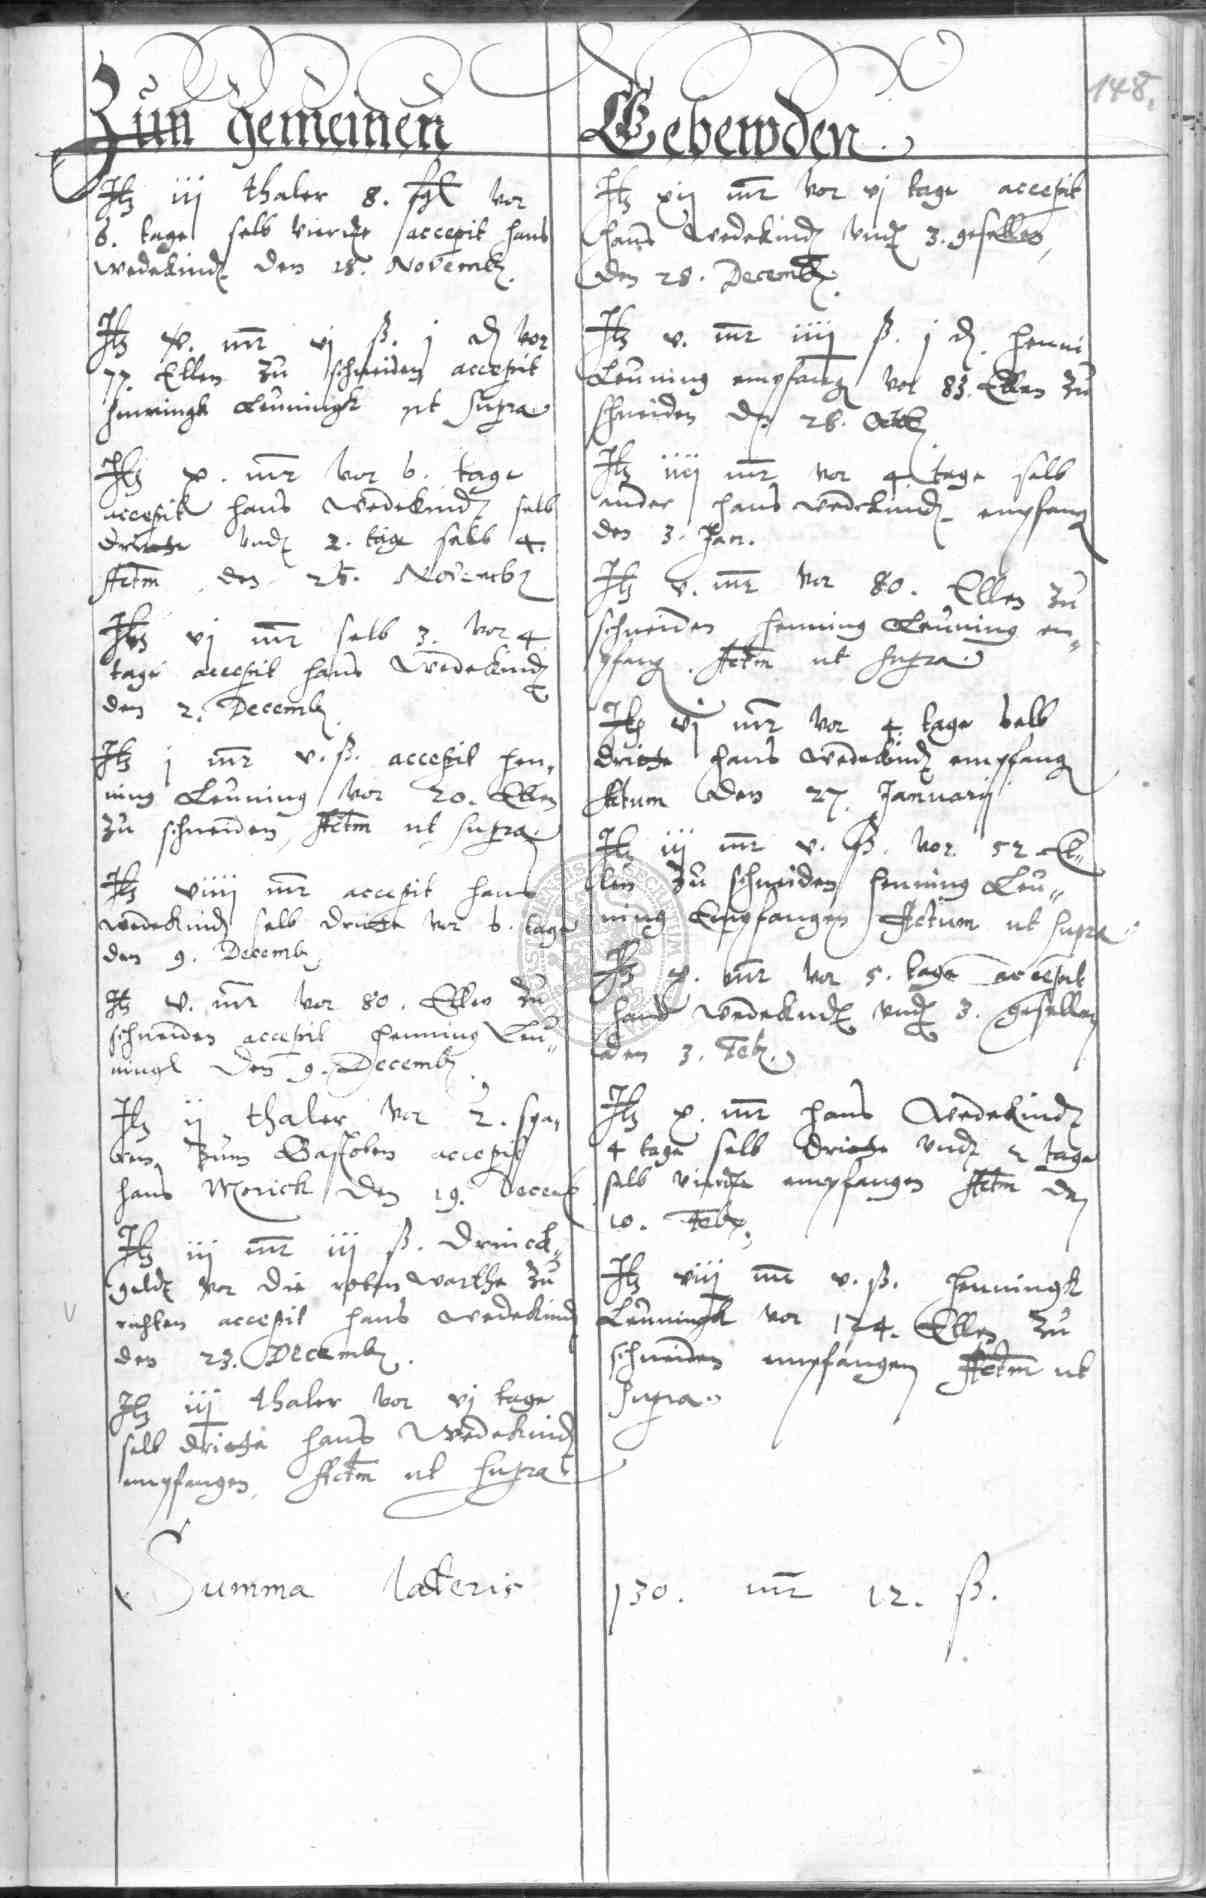 148.
Zun gemeinen Gebewden.
Itz iij thaler 8. sgl vor
6. tage selb vierde accepit hans
wedekindt den 18. Novemb.
Itz v. mr vj ß. j d vor
77. Ellen zu schneiden accepit
hinningk Leuningk ut supra
Itz x. mr vor 6. tage
accepit hans wedekindt selb
dritte undt 2. tage selb 4.
Actm den 25. Novemb
Itz vj mr selb 3. vor 4
tage accepit hans Wedekindt
den 2. Decemb.
Itz j mr v. ß. accepit hen,
ning Leuning vor 20. Ellen
zu schneiden, Actm ut supra.
Itz viiij mr accepit hans
wedekindt selb dritte vor 6. tage
den 9. Decemb.
Itz v. mr vor 80. Ellen zu
schneiden accepit Henning Leu„
ningk den 9. Decemb.
Itz ij thaler vor 2. spa,
ren zum accepit
hans Morick den 19. Decemb
Itz iij mr iij ß. drinck„
geldt vor die roten warthe zu
richten accepit hans wedekindt
den 23. Decemb.
Itz iij thaler vor vj tage
selb dritte hans Wedekindt
empfangen, Actm ut supra
Itz xij mr vor vj tage accepit
hans Wedekindt undt 3. gesellen,
den 28. Decemb.
Itz v. mr iiij ß. j d. henni
Leuning empfang vor 83. Ellen zu
schneiden den 28.
Itz iiij mr vor 4 tage selb
ander hans wedekindt empfang
den 3. Jan.
Itz v. mr vor 80. Ellen zu
schneiden henning Leuning em„
pfang. Actm ut supra
Itz vj mr vor 4. tage selb
dritte hans Wedekindt empfang
Actum den 27. Januarij
Itz iij mr v. ß. vor 52 El„
len zu schneiden henning Leu„
ning Empfangen Actum ut supra
Itz x. mr vor 5. tage accepit
hans wedekindt undt 3. gesellen
den 3. Feb.
Itz x. mr hans Wedekindt
4 tage selb dritte undt 2 tage
selb vierde empfangen Actm den
10. Feb.
Itz viij mr v. ß. henningk
Leuningk vor 124. Ellen zu
schneiden empfangen Actm ut
supra.
Summa lateris 130. mr 12. ß.